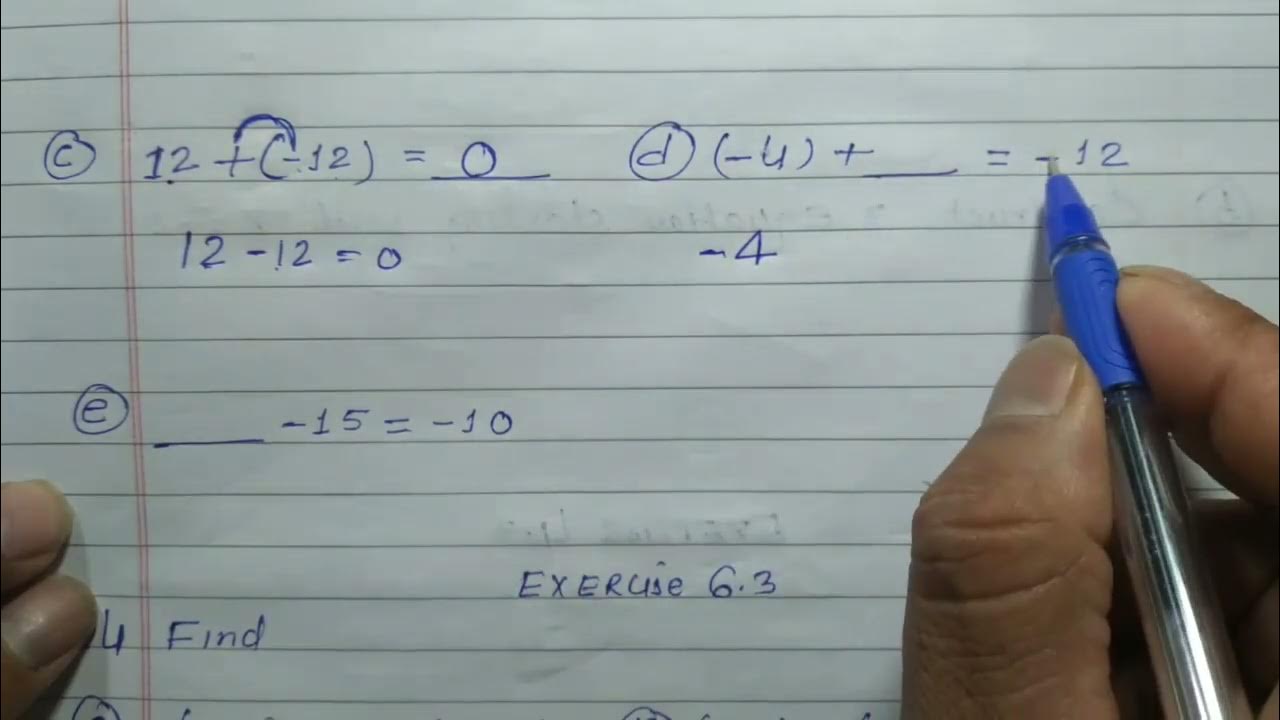 c 12 + (-12) = 0 d (-4) + ___ = -12
12 - 12 = 0 -4
e ___ -15 = -10
EXERCISE 6.3
4 Find